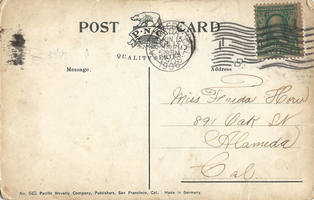 POST CARD
P.N.C.
QUALITY
Message.
Address
Miss Freda Horn
891 Oak St
Alameda
Cal.
No. 520. Pacific Novelty Company, Publishers, San Francisco, Cal. Made in Germany.